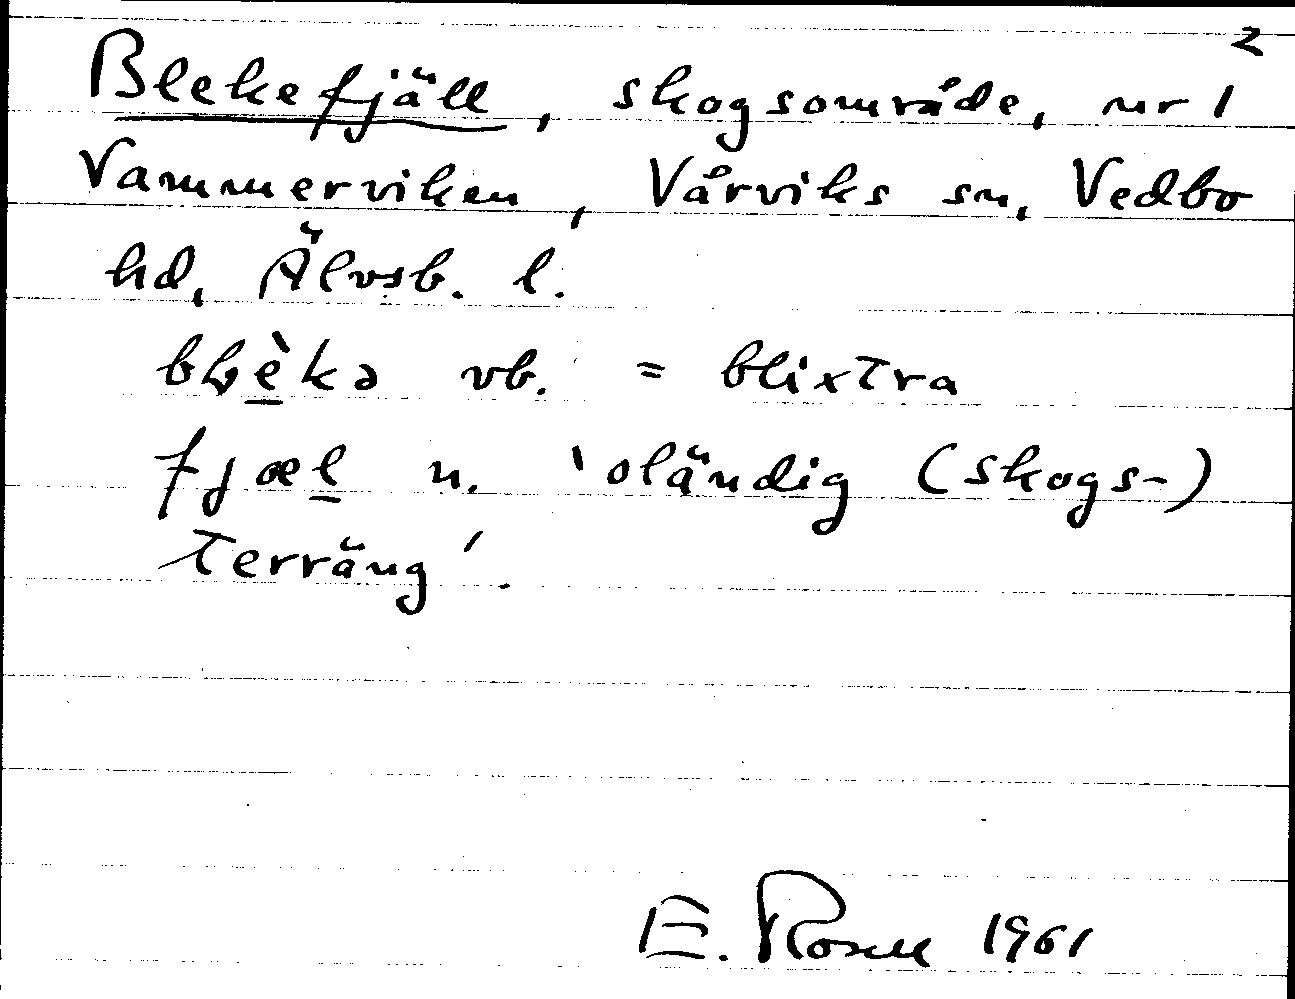 2
Blekefjäll, skogsområde, nr 1
Vammerviken, Vårviks sn, Vedbo
hd, Älvsb. l.
vb. = blixtra
fjæl n. 'oländig (skogs-)
terräng'.
E. Rosell 1961